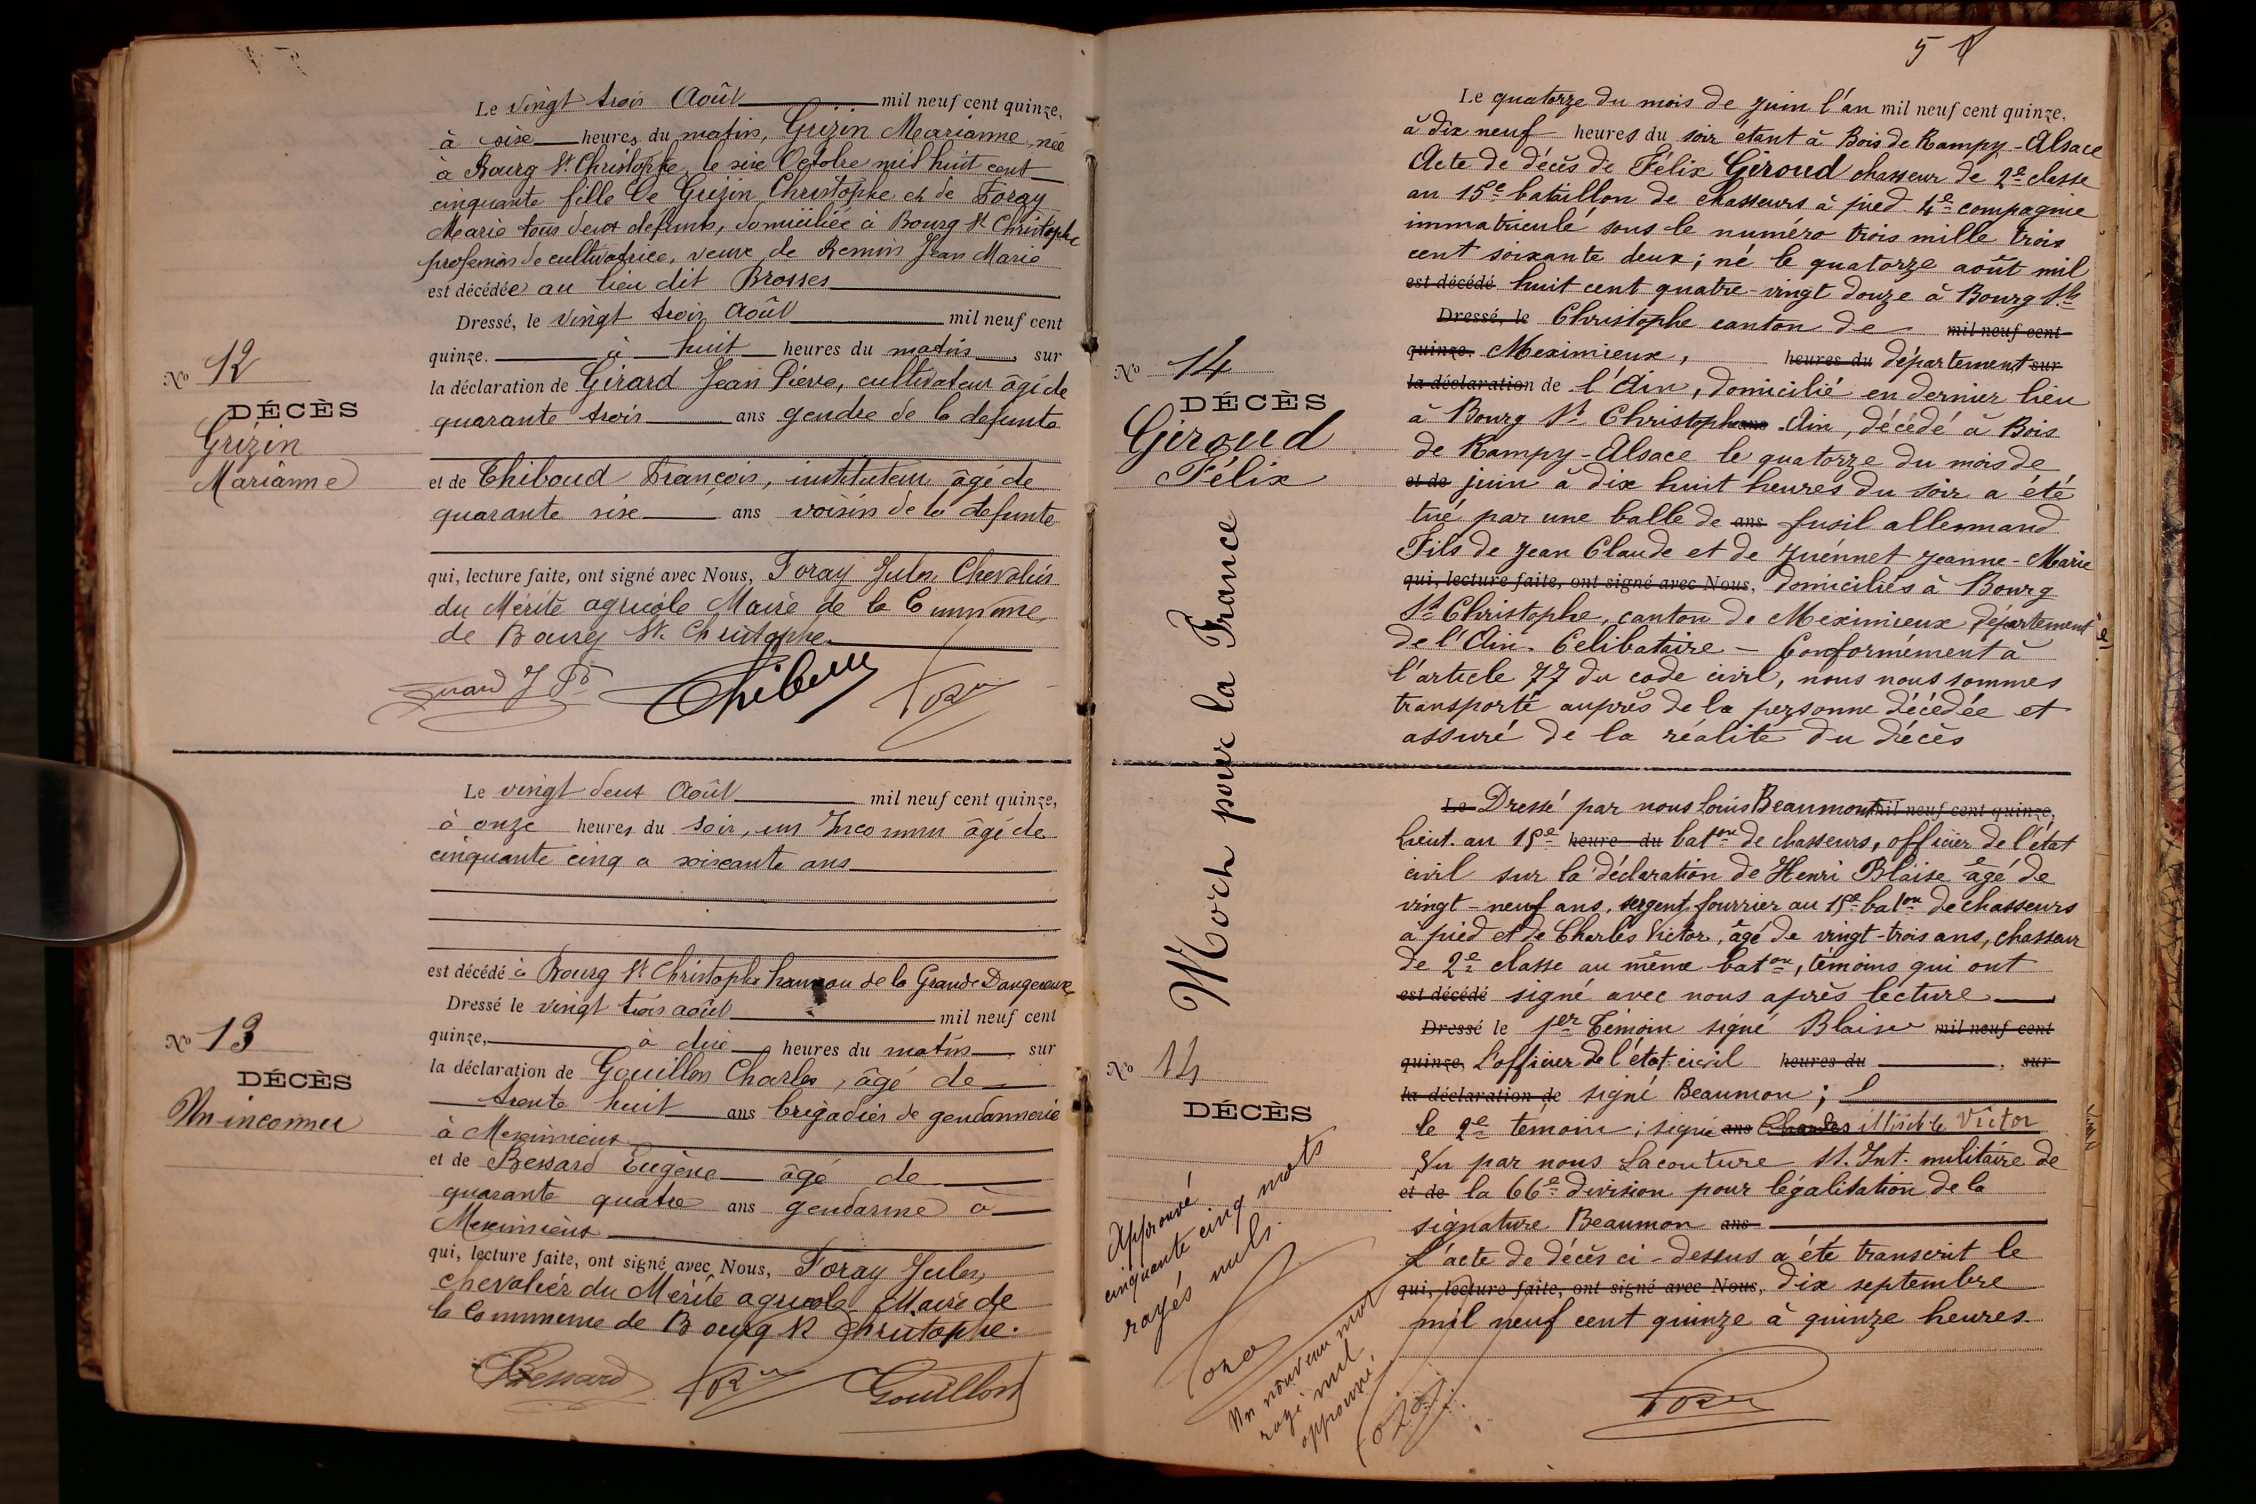 Le vingt trois Août mil neuf cent quinze,
à six heures du matin, Grizin Marianne, née
à Bourg St Christophe, le six Octobre mil huit cent
cinquante fille de Grizin Christophe et de Foray
Marie tous deux défunts, domiciliée à Bourg St Christophe
profession de cultivatrice, veuve de Remin Jean Marie
est décédée au lieu dit Brosses
Dressé, le vingt trois Août mil neuf cent
quinze. à huit heures du matin, sur
la déclaration de Girard Jean Pierre, cultivateur âgé de
quarante trois ans gendre de la defunte
et de Thiboud François, instituteur âgé de
quarante six ans voisin de la defunte
qui, lecture faite, ont signé avec Nous, Foray Jules, Chevalier
du Mérite agricole Maire de la Commune
de Bourg St Christophe.
No 12
DÉCÈS
Grizin
Marianne
Le vingt deux Août mil neuf cent quinze,
à onze heures du soir, un Inconnu âgé de
cinquante cinq a soixante ans
est décédé à Bourg St Christophe hameau de la Grande Dangereuse
Dressé le vingt trois août mil neuf cent
quinze, à dix heures du matin, sur
la déclaration de Gouillon Charles, âgé de
trente huit ans brigadier de gendarmerie
à Meximieux
et de Bessard Eugène âgé de
quarante quatre ans gendarme à
Meximieux
qui, lecture faite, ont signé avec Nous, Foray Jules,
chevalier du Mérite agricole Maire de
la Commune de Bourg St Christophe.
Bessard Gouillon
No 13
DÉCÈS
Un inconnu
5
Le quatorze du mois de juin l'an mil neuf cent quinze,
à dix neuf heures du soir étant à Bois de Rampy-Alsace
Acte de décès de Félix Giroud chasseur de 2e classe
au 15e bataillon de chasseurs à pied 4e compagnie
immatriculé sous le numéro trois mille trois
cent soixante deux; né le quatorze août mil
est décédé huit cent quatre-vingt douze à Bourg St
Dressé, le Christophe canton de mil neuf cent
quinze. Meximieux, heures du département sur
la déclaration de l'Ain, domicilié en dernier lieu
à Bourg St Christophe ans Ain, décédé à Bois
de Rampy-Alsace le quatorze du mois de
et de juin à dix huit heures du soir a été
tué par une balle de ans fusil allemand
Fils de Jean Claude et de Juénnet Jeanne-Marie
qui, lecture faite, ont signé avec Nous, domiciliés à Bourg
St Christophe, canton de Meximieux département
de l'Ain. Celibataire - Conformément à
l'article 77 du code civil, nous nous sommes
transporté auprès de la personne décédée et
assuré de la réalité du décès
No 14
DÉCÈS
Giroud
Félix
Mort pour la France
Le Dressé par nous Louis Beaumont mil neuf cent quinze,
Lieut. au 15e heure du baton de chasseurs, officier de l'état
civil sur la déclaration de Henri Blaise âgé de
vingt-neuf ans, sergent fourrier au 15e baton de chasseurs
à pied et de Charles Victor, âgé de vingt-trois ans, chasseur
de 2e classe au même baton, témoins qui ont
est décédé signé avec nous après lecture
Dressé le 1er Témoin signé Blaise mil neuf cent
quinze, L'officier de l'état civil heures du , sur
la déclaration de signé Beaumon;
le 2e témoin; signé ans Charles illisible Victor
Vu par nous Lacouture ss. Int. militaire de
et de la 66e division pour légalisation de la
signature Beaumon ans
L'acte de décès ci-dessus a été transcrit le
qui, lecture faite, ont signé avec Nous, dix septembre
mil neuf cent quinze à quinze heures.
No 14
DÉCÈS
Approuvé
cinquante cinq mots
rayés nuls.
Un nouveau mot
rayé nul
approuvé.